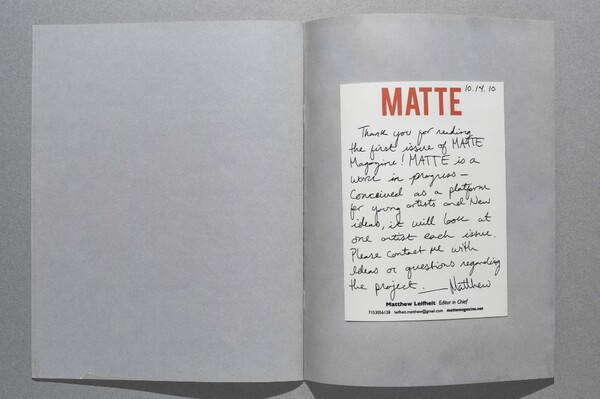 MATTE 10.14.10
Thank you for reading
the first issue of MATTE
Magazine! MATTE is a
work in progress—
Conceived as a platform
for young artists and New
ideas, it will look at
one artist each issue.
Please contact me with
Ideas or questions regarding
the project. — Matthew
Matthew Leifheit Editor in Chief
7153056128 leifheit.matthew@gmail.com mattemagazine.net